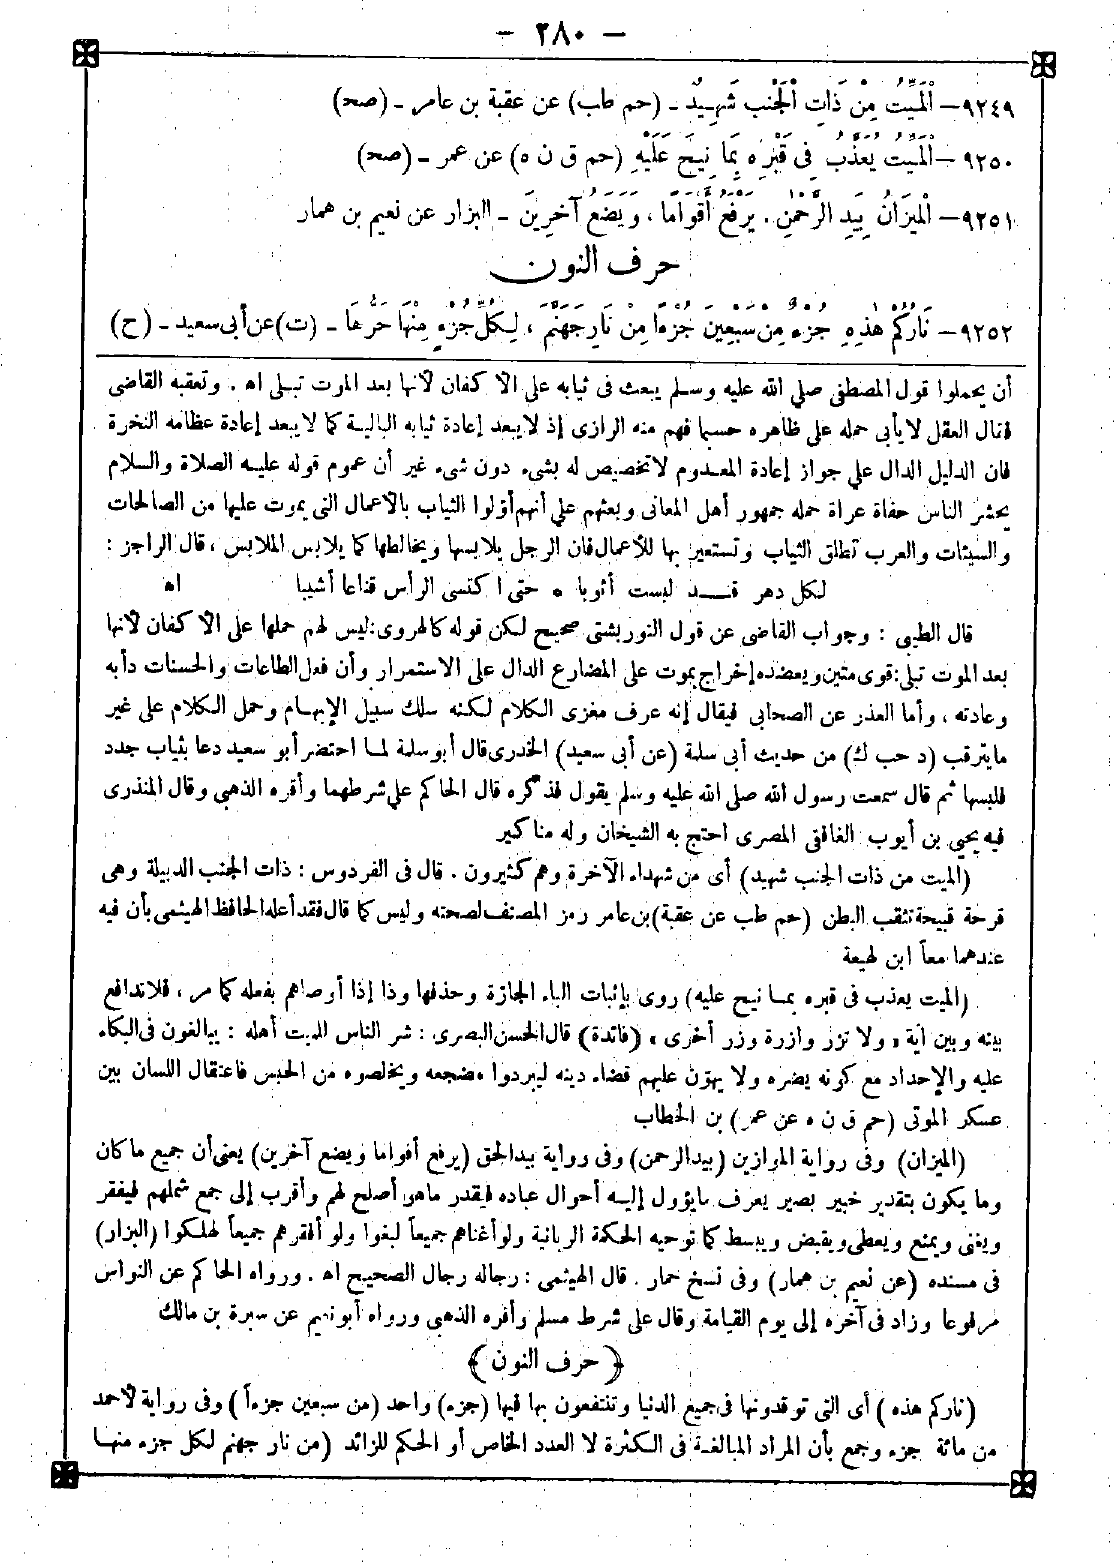 – ٢٨٠ –
٩٢٤٩ – اَلْمَيِّتُ مِنْ ذَاتِ الْجَنْبِ شَهِيدٌ – (حم طب) عن عقبة بن عامر – (صح)
٩٢٥٠ – اَلْمَيِّتُ يُعَذَّبُ فِي قَبْرِهِ بِمَا نِيحَ عَلَيْهِ (حم ق ن ه) عن عمر – (صح)
٩٢٥١ – اَلْمِيزَانُ بِيَدِ الرَّحْمٰنِ . يَرْفَعُ أَقْوَامًا ، وَيَضَعُ آخَرِينَ – البزار عن نعيم بن همار
حرف النون
٩٢٥٢ – نَارُكُمْ هٰذِهِ جُزْءٌ مِنْ سَبْعِينَ جُزْءًا مِنْ نَارِ جَهَنَّمَ ، لِكُلِّ جُزْءٍ مِنْهَا حَرُّهَا – (ت) عن أبى سعيد – (ح)
أن يحملوا قول المصطفى صلي الله عليه وسلم يبعث فى ثيابه على الا كفان لأنها بعد الموت تبلى اه . وتعقبه القاضى
فقال العقل لا يأبى حمله على ظاهره حسبما فهم منه الرازى إذ لا يبعد إعادة ثيابه البالية كما لا يبعد إعادة عظامه النخرة
فان الدليل الدال علي جواز إعادة المعدوم لا تخصيص له بشىء دون شىء غير أن عموم قوله عليه الصلاة والسلام
يحشر الناس حفاة عراة حمله جمهور أهل المعانى وبعثهم علي أنهم أوّلوا الثياب بالأعمال التى يموت عليها من الصالحات
والسيئات والعرب تطلق الثياب وتستعير بها للأعمال فان الرجل يلابسها ويخالطها كما يلابس الملابس ، قال الراجز :
لكل دهر قد لبست أثوبا ه حتى ا كتسى الرأس قناعا أشيبا اه
قال الطيبى : وجواب القاضى عن قول التوربشتى صحيح لكن قوله كالهروى: ليس لهم حملها على الا كفان لأنها
بعد الموت تبلى: قوى متين ويعضده إخراج يموت على المضارع الدال على الاستمرار وأن فعل الطاعات والحسنات دأبه
وعادته ، وأما العذر عن الصحابى فيقال إنه عرف مغزى الكلام لكنه سلك سبيل الإبهام وحمل الكلام على غير
ما يترقب (د حب ك) من حديث أبى سلمة (عن أبى سعيد) الخدرى قال أبو سلمة لما احتضر أبو سعيد دعا بثياب جدد
فلبسها ثم قال سمعت رسول الله صلى الله عليه وسلم يقول فذكره قال الحا كم على شرطهما وأقره الذهبى وقال المنذرى
فيه يحيى بن أيوب الغافقى المصرى احتج به الشيخان وله منا كير
(الميت من ذات الجنب شهيد) أى من شهداء الآخرة وهم كثيرون . قال فى الفردوس : ذات الجنب الدبيلة وهى
قرحة قبيحة تثقب البطن (حم طب عن عقبة) بن عامر رمز المصنف لصحته وليس كما قال فقد أعله الحافظ الهيثمى بأن فيه
عندهما معاً ابن لهيعة
(الميت يعذب فى قبره بما نيح عليه) روى بإثبات الباء الجازة وحذفها وذا إذا أوصاهم بفعله كما مر ، فلا تدافع
بينه وبين آية « ولا تزر وازرة وزر أخرى » (فائدة) قال الحسن البصرى : شر الناس للميت أهله : يبالغون فى البكاء
عليه والإحداد مع كونه يضره ولا يهوّن عليهم قضاء دينه ليبردوا مضجعه ويخلصوه من الحبس فاعتقال اللسان بين
عسكر الموتى (حم ق ن ه عن عمر) بن الخطاب
(الميزان) وفى رواية الموازين (بيد الرحمن) وفى رواية بيد الحق (يرفع أقواما ويضع آخرين) يعنى أن جميع ما كان
وما يكون بتقدير خبير بصير يعرف ما يؤول إليه أحوال عباده فيقدر ما هو أصلح لهم وأقرب إلى جمع شملهم فيفقر
ويغنى ويمنع ويعطى ويقبض ويبسط كما توجبه الحكمة الربانية ولو أغناهم جميعاً لبغوا ولو أفقرهم جميعاً لهلكوا (البزار)
فى مسنده (عن نعيم بن همار) وفى نسخ حمار . قال الهيثمى : رجاله رجال الصحيح اه . ورواه الحا كم عن النواس
مرفوعا وزاد فى آخره إلى يوم القيامة وقال على شرط مسلم وأقره الذهبى ورواه أبو نعيم عن سبرة بن مالك
﴿ حرف النون ﴾
(ناركم هذه) أى التى توقدونها فى جميع الدنيا وتنتفعون بها فيها (جزء) واحد (من سبعين جزءاً) وفى رواية لأحمد
من مائة جزء وجمع بأن المراد المبالغة فى الكثرة لا العدد الخاص أو الحكم للزائد (من نار جهنم لكل جزء منها